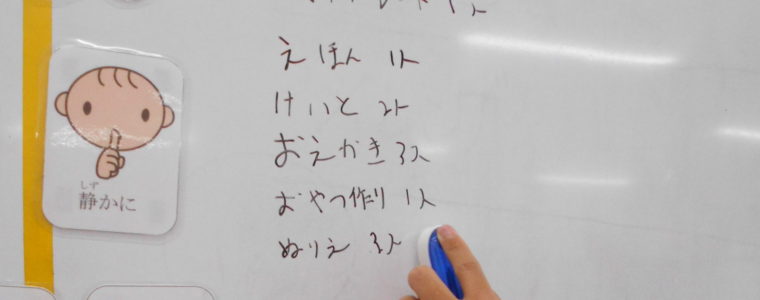 えほん 1人
けいと 2人
おえかき 3人
おやつ作り 1人
ぬりえ 3人
しず
静かに